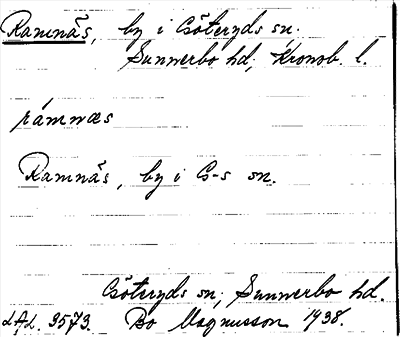 Ramnäs, by i Göteryds sn.
Sunnerbo hd, Kronob. l.
rámnæs
Ramnäs, by i G-s sn.
Göteryds sn, Sunnerbo hd.
LAL. 3573. Bo Magnusson 1938.